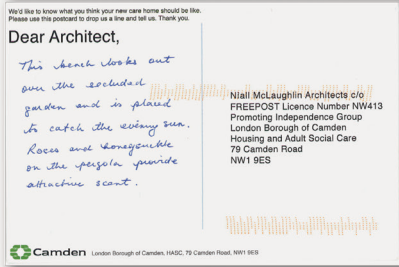 We'd like to know what you think your new care home should be like.
Please use this postcard to drop us a line and tell us. Thank you.
Dear Architect,
This bench looks out
over the secluded
garden and is placed
to catch the evening sun.
Roses and honeysuckle
on the pergola provide
attractive scent.
Niall McLaughlin Architects c/o
FREEPOST Licence Number NW413
Promoting Independence Group
London Borough of Camden
Housing and Adult Social Care
79 Camden Road
NW1 9ES
Camden London Borough of Camden, HASC, 79 Camden Road, NW1 9ES